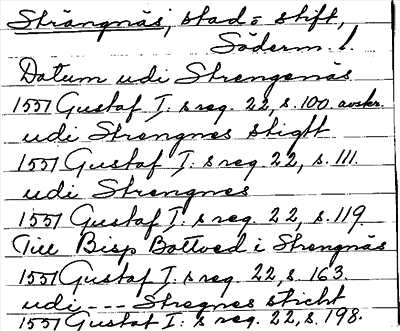 Strängnäs, stad o stift,
Söderm. l.
Datum udi Strengenäs
1551 Gustaf I: s reg. 22, s. 100 avskr.
udi Strengnes stigtt
1551 Gustaf I: s reg. 22, s. 111.
udi Strengnes
1551 Gustaf I: s reg. 22, s. 119.
Till Bisp Bottved i Strengnäs
1551 Gustaf I: s reg. 22, s. 163.
udi --- Stregnes sticht
1551 Gustaf I: s reg. 22, s. 198.